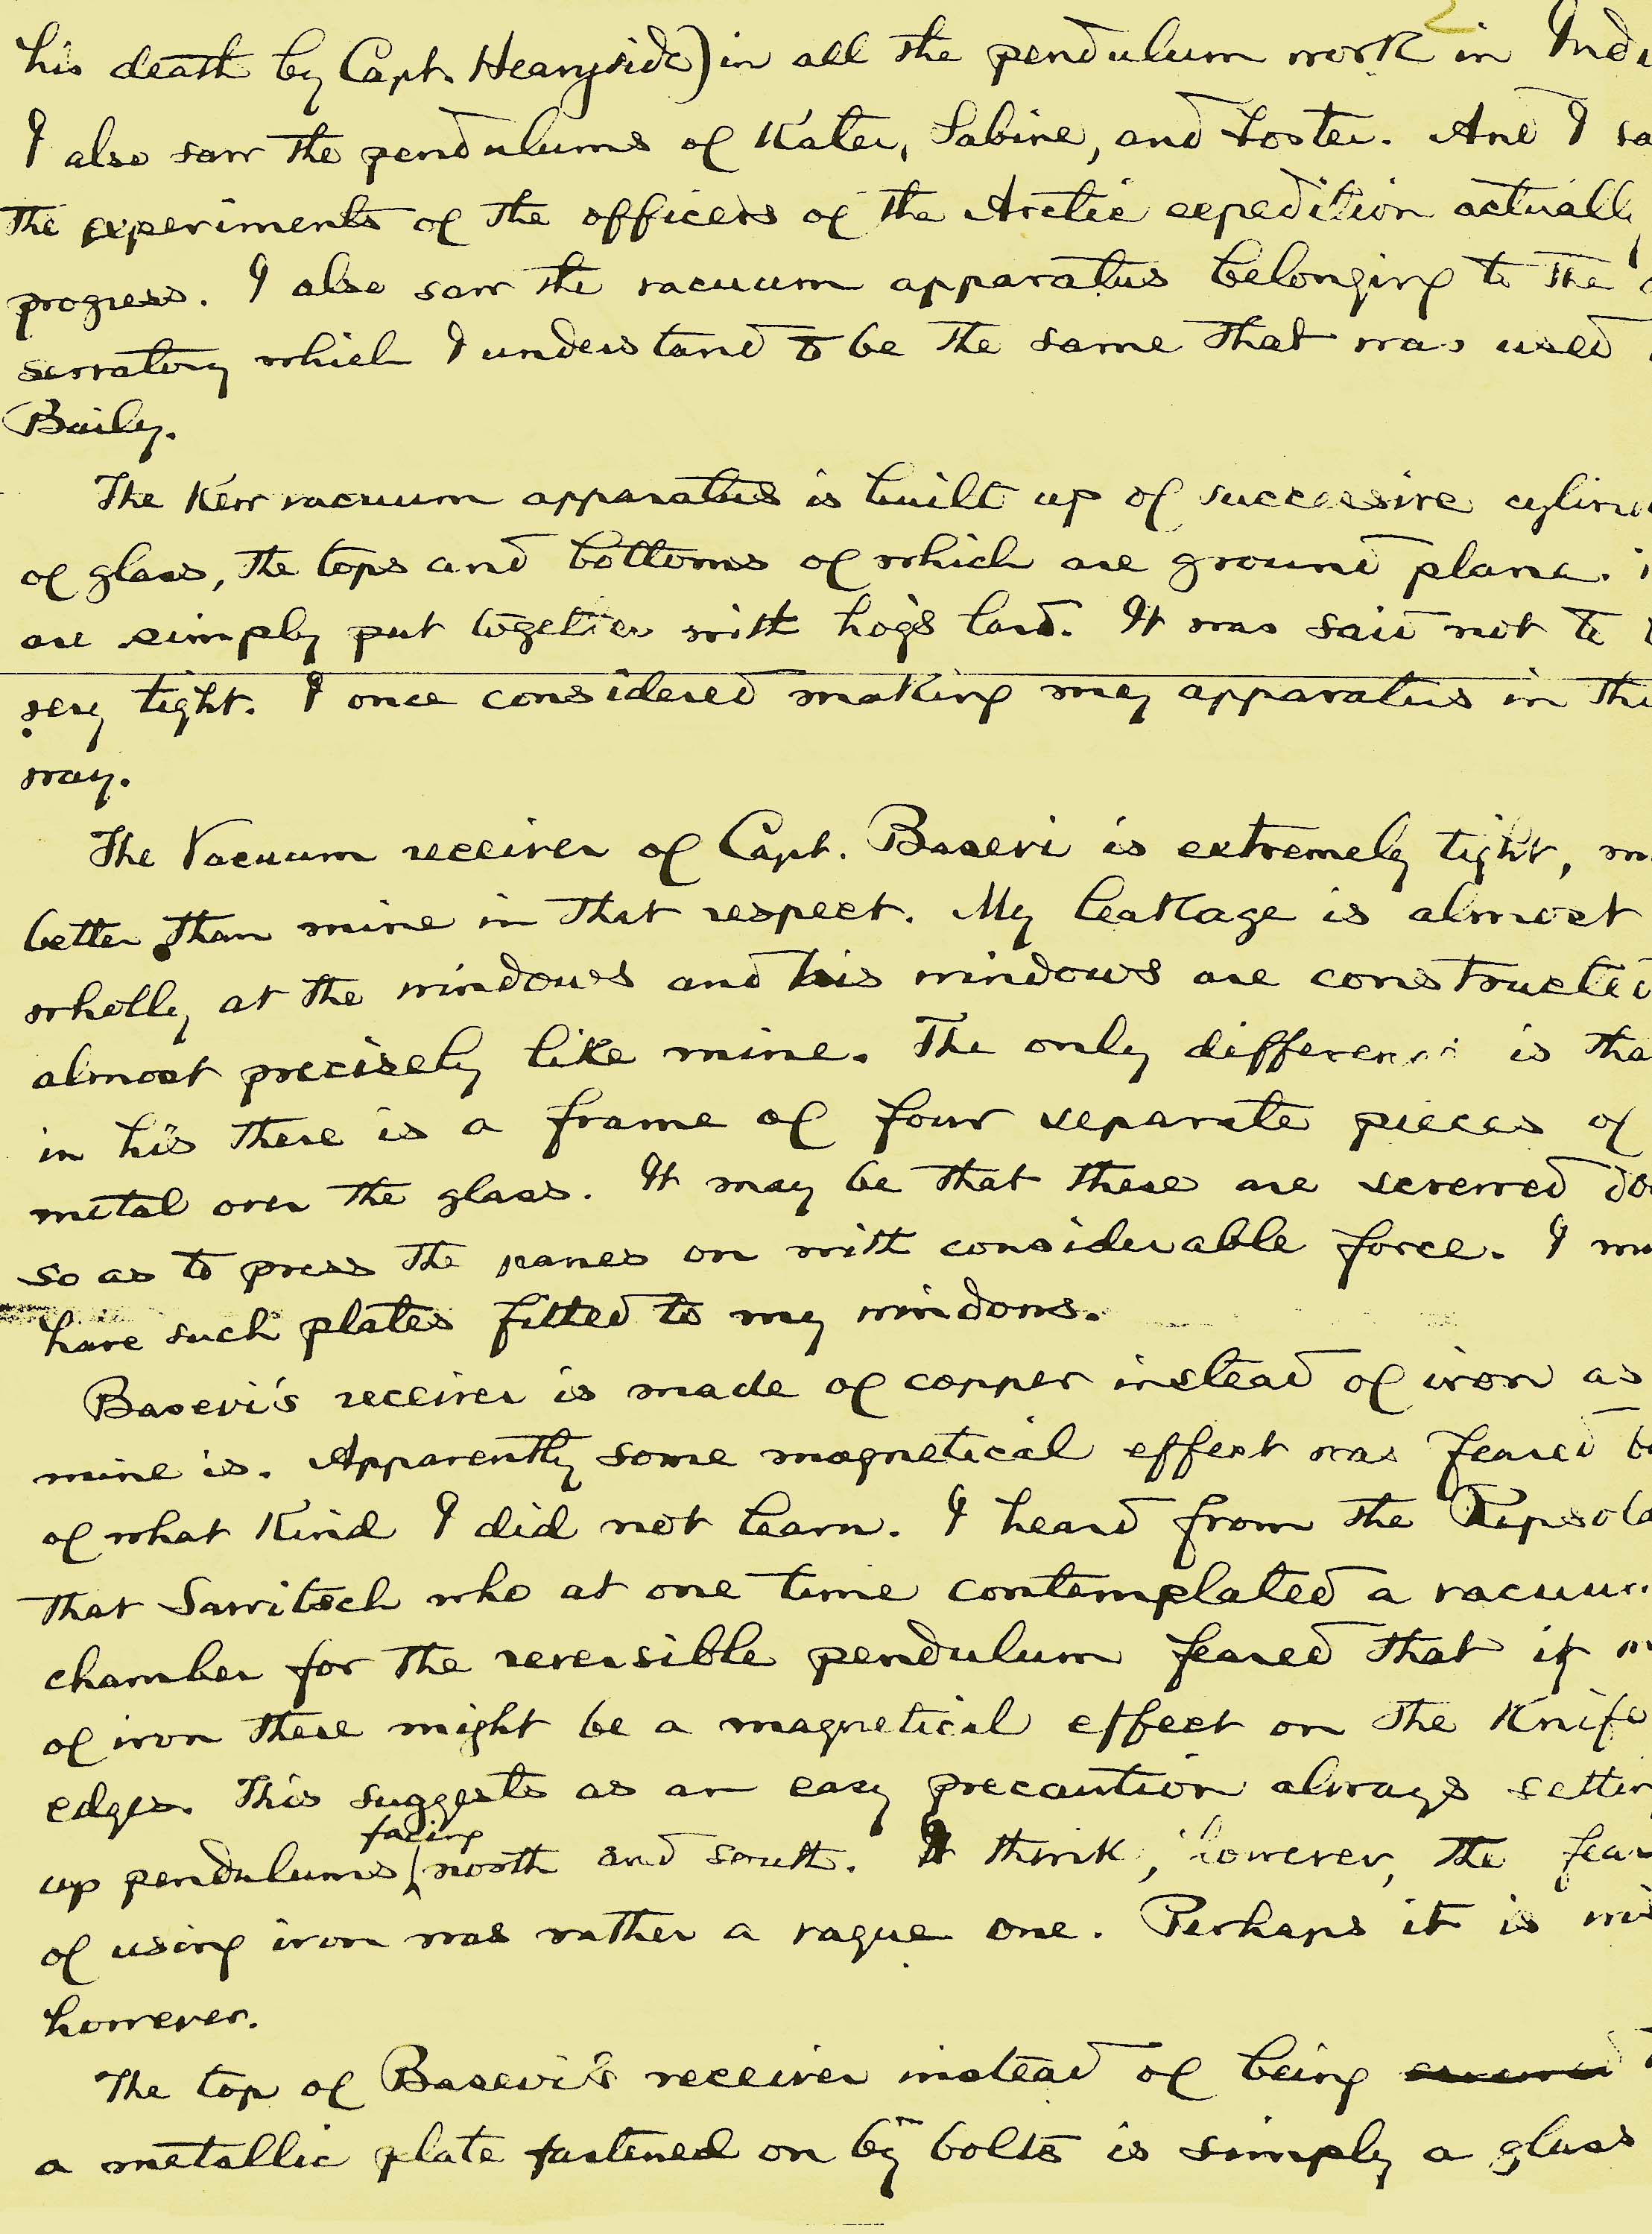 2
his death by Capt. Heavyside) in all the pendulum work in Indi
I also saw the pendulums of Kater, Sabine, and Foster. And I sa
the experiments of the officers of the Arctic expedition actually
progress. I also saw the vacuum apparatus belonging to the
servatory which I understand to be the same that was used
Baily.
The Kew vacuum apparatus is built up of successive cylind
of glass, the tops and bottoms of which are ground plane.
are simply put together with hog's lard. It was said not to
very tight. I once considered making my apparatus in thi
way.
The Vacuum receiver of Capt. Basevi is extremely tight, m
better than mine in that respect. My leakage is almost
wholly at the windows and his windows are constructed
almost precisely like mine. The only difference is tha
in his there is a frame of four separate pieces of
metal over the glass. It may be that these are screwed do
so as to press the panes on with considerable force. I mu
have such plates fitted to my windows.
Basevi's receiver is made of copper instead of iron as
mine is. Apparently some magnetical effect was feared b
of what kind I did not learn. I heard from the Repsold
that Sawitsch who at one time contemplated a vacuum
chamber for the reversible pendulum feared that if
of iron there might be a magnetical effect on the knife
edges. This suggests as an easy precaution always settin
facing
up pendulums north and south. I think, however, the fear
of using iron was rather a vague one. Perhaps it is wis
however.
The top of Basevi's receiver instead of being
a metallic plate fastened on by bolts is simply a glass